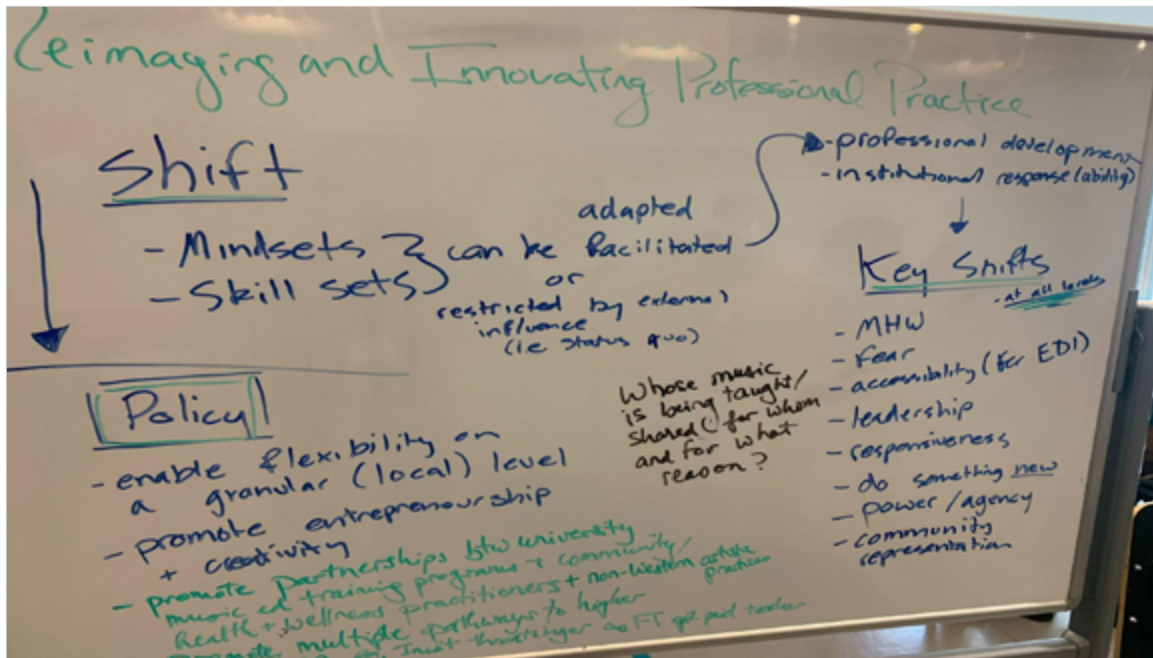 Reimaging and Innovating Professional Practice
Shift
- Mindsets
- Skill sets
can be
adapted
facilitated
or
restricted by external
influence
(i.e status quo)
- professional development
- institutional response (ability)
Key Shifts
- at all levels
- MHW
- fear
- accessibility (for EDI)
- leadership
- responsiveness
- do something new
- power/agency
- community
representation
Whose music
is being taught/
shared (for whom
and for what
reason?
Policy
- enable flexibility on
a granular (local) level
- promote entrepreneurship
+ creativity
- promote partnerships btw university
music ed training programs + community/
health + wellness practitioners + non-western artistic
practices
multiple pathways to higher
FT
paid teacher